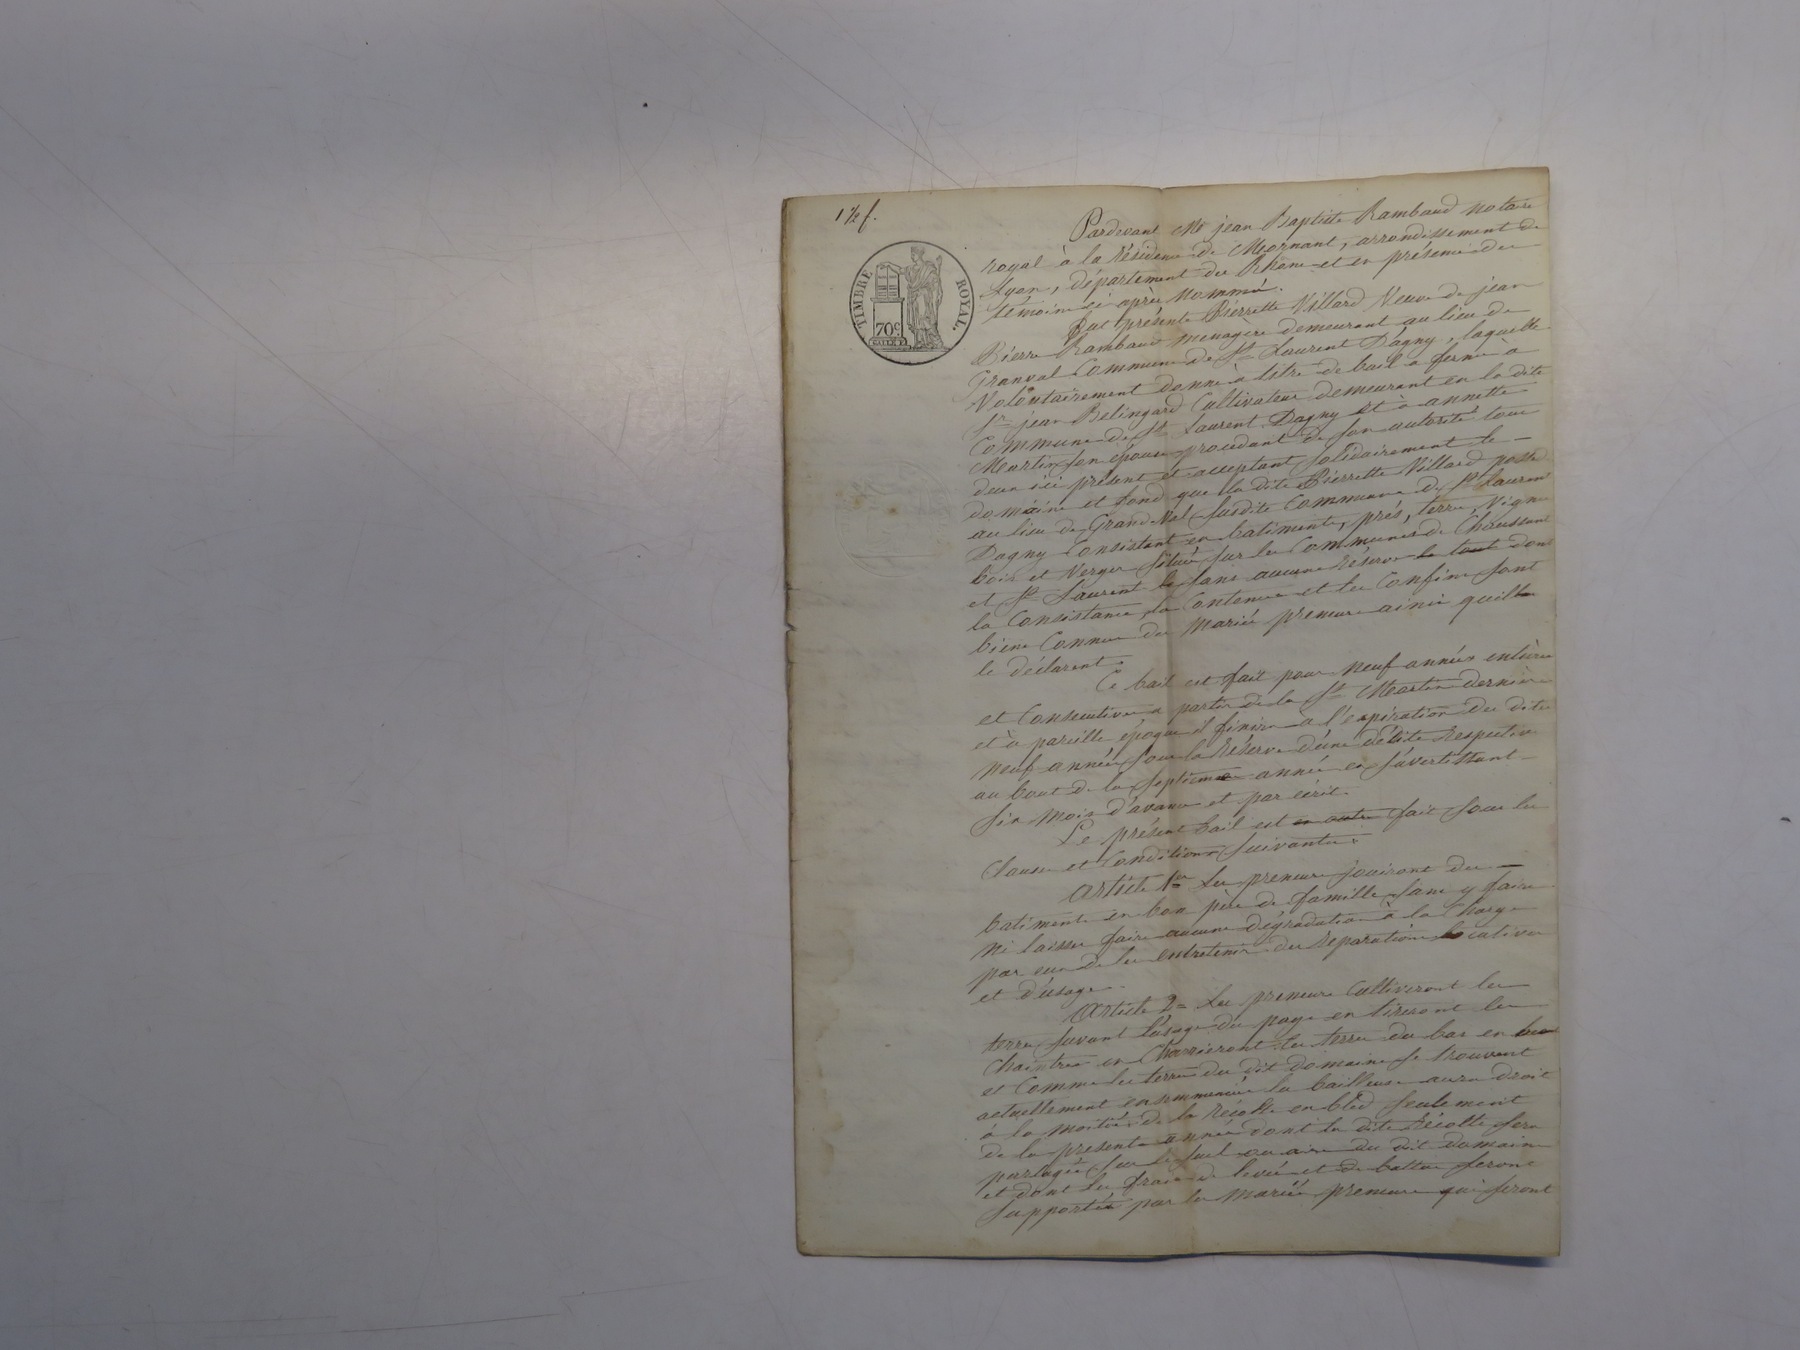 1 ½ f.
TIMBRE ROYAL.
70 c
Pardevant Me jean Baptiste Rambaud notaire
royal à la résidence de Mornant, arrondissement de
Lyon, département du Rhône et en présence des
témoins ci après nommés.
Fut présente Pierrette Villard Veuve de jean
Pierre Rambaud menagère demeurant au lieu de
Granval Commune de St Laurent Dagny, laquelle
Volontairement donne à titre de bail a ferme à
Sr jean Belingard Cultivateur demeurant en la dite
Commune de St Laurent Dagny et à annette
Martin son épouse procedant de son autorité tous
deux ici présent et acceptant solidairement le
domaine et fond que la dite Pierrette Villard possède
au lieu de Grand Val susdite Commune de St Laurent
Dagny Consistant en batiments, prés, terres, Vignes
bois et Verger situés sur les Communes de Chaussant
et St Laurent le sans aucune réserve le tout dont
la Consistance, la Contenue et les Confins sont
biens Connus des Mariés preneurs ainsi quils
le déclarent.
Ce bail est fait pour neuf années entières
et Consecutives a partir de la St Martin dernière
et à pareille époque il finira à l'expiration des dites
neuf années sous la réserve d'une dédite respective
au bout de la septieme année en s'avertissant
six mois d'avance et par écrit.
Le présent bail est en outre fait sous les
Clauses et Conditions suivantes:
Article 1er Les preneurs jouiront des
batiments en bon père de famille sans y faire
ni laisser faire aucune dégradation à la Charge
par eux de les entretenir des réparations locatives
et d'usage.
Article 2= Les preneurs Cultiveront les
terres suivant l'usage du pays en tireront les
Chaintres en Charrieront les terres du bas en haut
et Comme les terres du dit domaine se trouvent
actuellement ensemencées la bailleuse aura droit
à la moitié de la récolte en bled seulement
de la presente année dont la dite récolte sera
partagée sur le suel ou aire du dit domaine
et dont les frais de levée et de battue seront
supportés par les Mariés preneurs qui seront